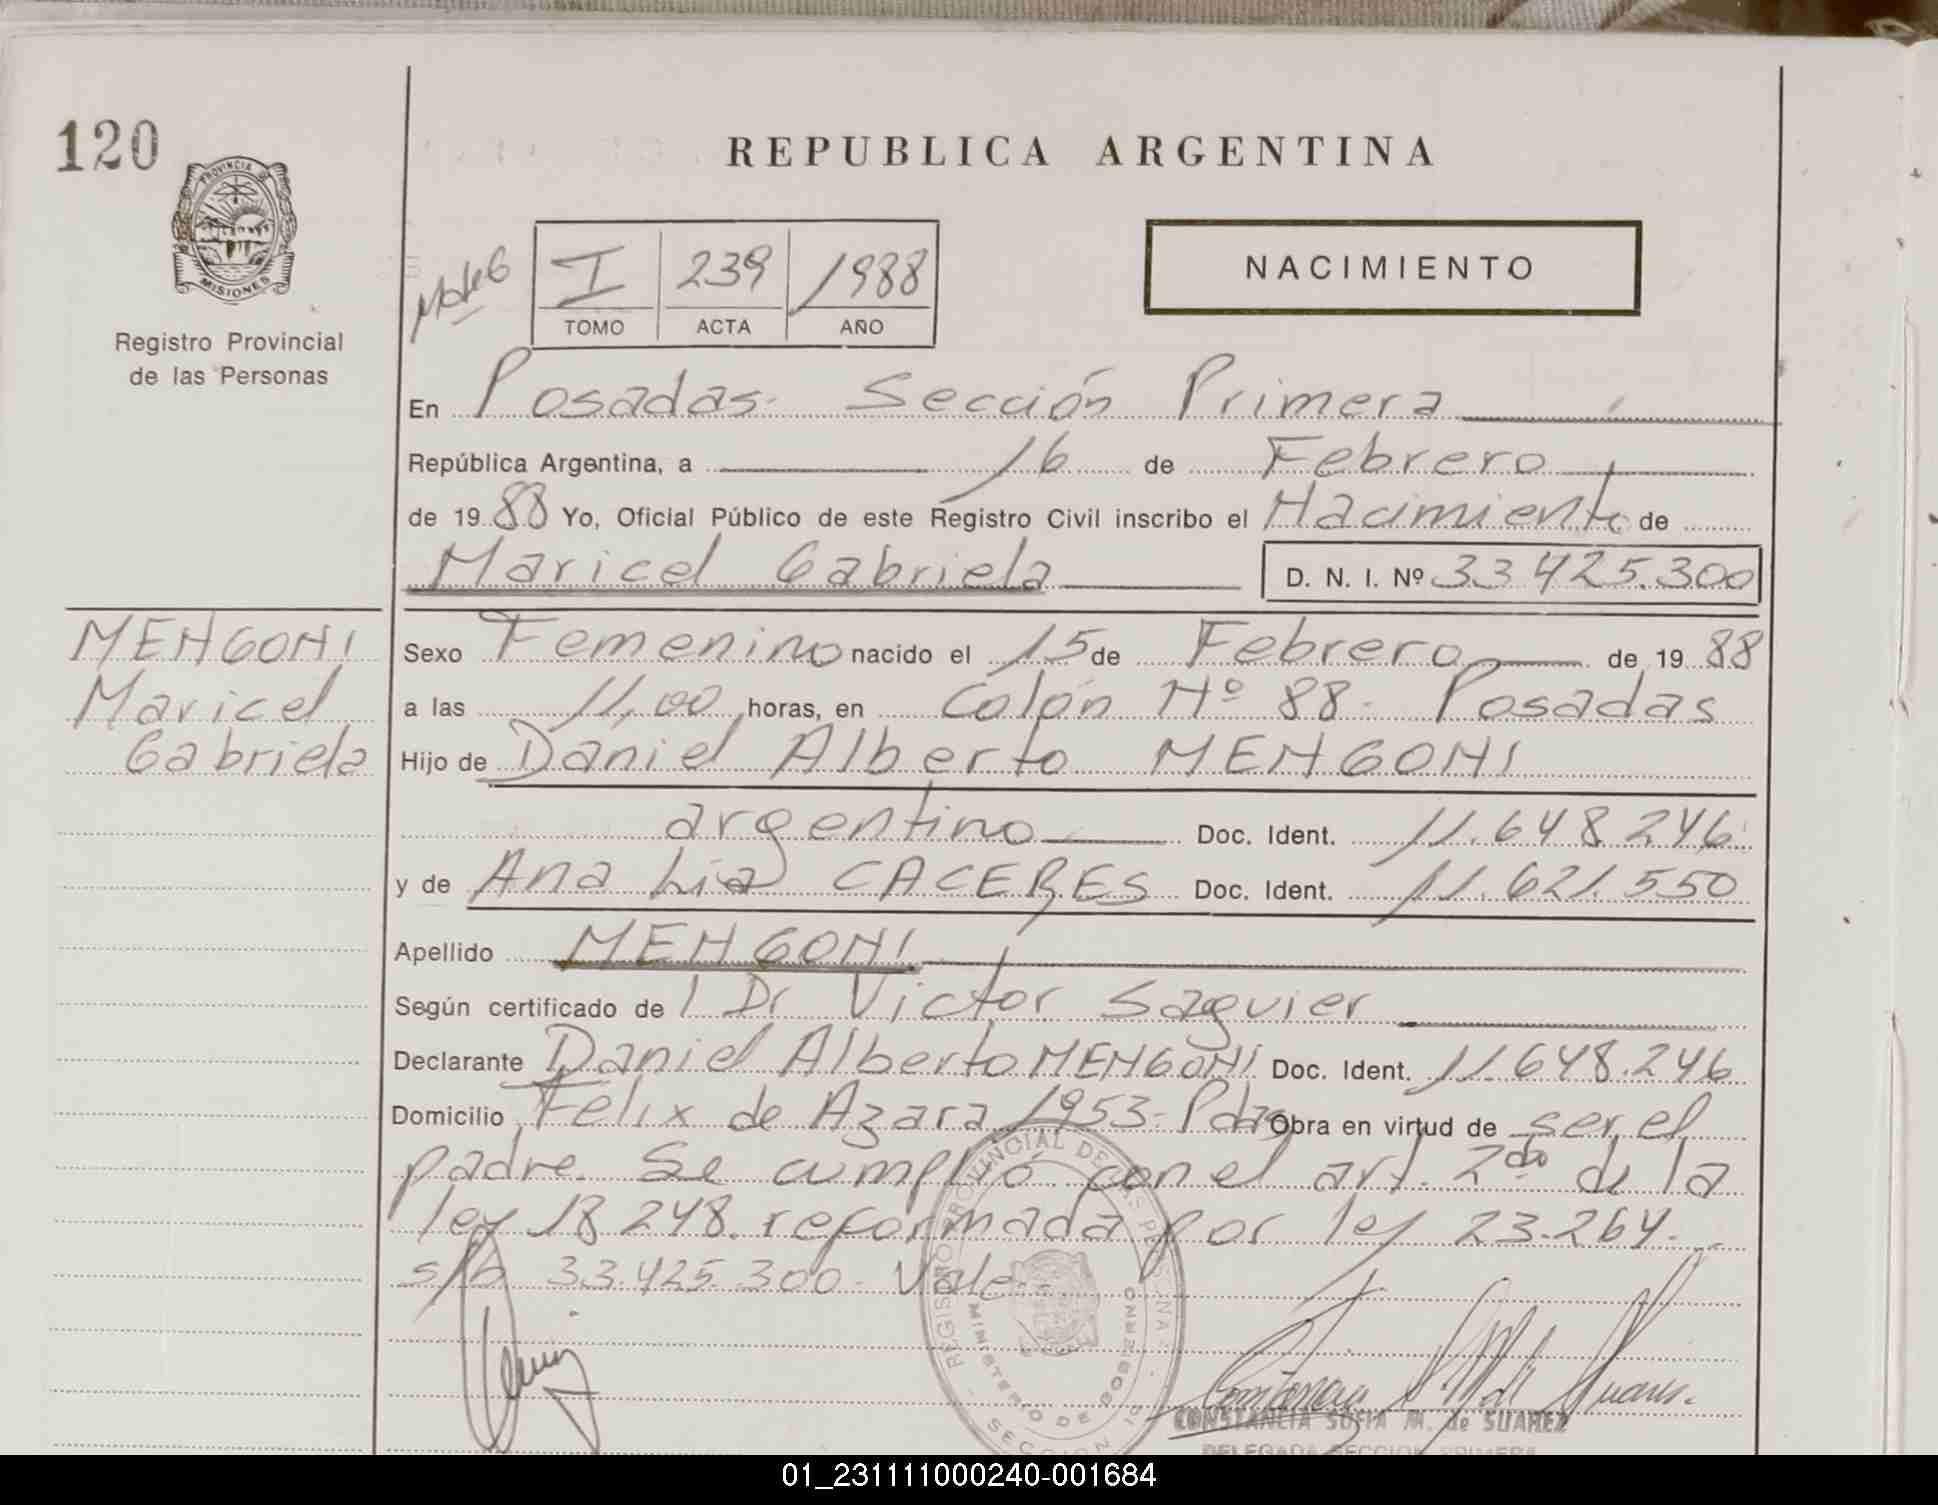 120
REPUBLICA ARGENTINA
PROVINCIA DE MISIONES
Registro Provincial
de las Personas
I 239 1988
TOMO ACTA AÑO
NACIMIENTO
En Posadas. Sección Primera
República Argentina, a 16 de Febrero
de 1988 Yo, Oficial Público de este Registro Civil inscribo el Nacimiento de
Maricel Gabriela D. N. I. Nº 33.425.300
MENGONI
Maricel
Gabriela
Sexo Femenino nacido el 15 de Febrero de 1988
a las 11,00 horas, en Colón Nº 88. Posadas
Hijo de Daniel Alberto MENGONI
argentino Doc. Ident. 11.648.246
y de Ana Lia CACERES Doc. Ident. 11.621.550
Apellido MENGONI
Según certificado de l Dr Victor Saguier
Declarante Daniel Alberto MENGONI Doc. Ident. 11.648.246
Domicilio Felix de Azara 1953- Pdas Obra en virtud de ser el
padre. Se cumplió con el art. 2do de la
ley 18.248. reformada por ley 23.264.
s/b 33.425.300. Vale
REGISTRO PROVINCIAL DE LAS PERSONAS
MINISTERIO DE GOBIERNO
SECCION
CONSTANCIA SOFIA M. de SUAREZ
DELEGADA SECCION PRIMERA
01_231111000240-001684